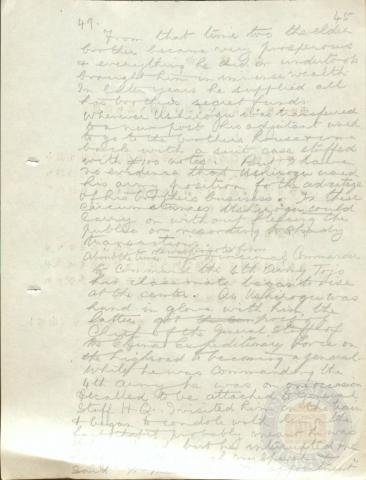 49. 45
From that time too the elder
brother became very prosperous
& everything he did or undertook
brought him in immense wealth
In later years he supplied all
his brother's secret funds.
Whenever Ushiroku was transferred
to a new post his adjutant used
to go to the brother's house & come
back with a suit case stuffed
with ¥100 notes. But I have
no evidence that Ushiroku used
his army position for the advantage
of his brother's business. In these
circumstances Ushiroku could
carry on without fleecing the
public or resorting to shady
transactions.
Divisional Commander
to command the 4th Army Tojo
his classmate began to rise
at the center. As Ushiroku was
hand in glove with him, the
latter
Chief of the General Staff of
the China Expeditionary Force on
the highroad to becoming a general
While he was commanding the
4th Army he was on one occasion
recalled to be attached to General
Staff H.Q. I visited him
& began to condole with
but he interrupted me